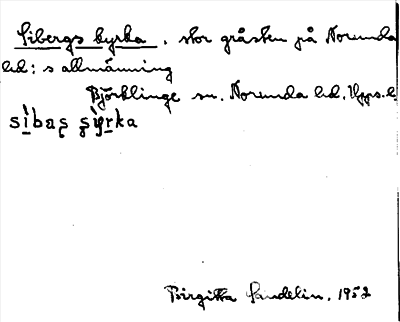 Sibergs kyrka, stor gråsten på Norunda
hd:s allmänning
Björklinge sn. Norunda hd. Upps. l.
sìbaș șỳrka
Birgitta Sandelin, 1952